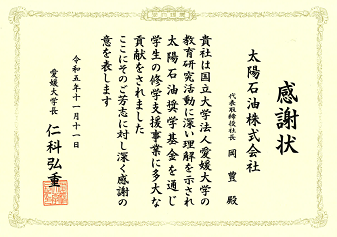 感謝状
太陽石油株式会社
代表取締役社長 岡 豊 殿
貴社は国立大学法人愛媛大学の
教育研究活動に深い理解を示され
太陽石油奨学基金を通じ
学生の修学支援事業に多大な
貢献をされました
ここにそのご芳志に対し深く感謝の
意を表します
令和五年十一月十一日
愛媛大学長 仁科弘重